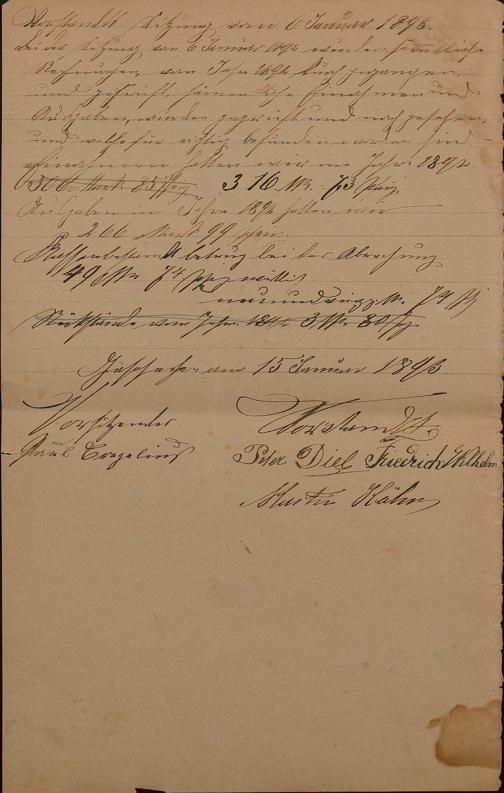 Vorstandt Sitzung vom 6 Januar 1893.
Bei der Sitzung von 6 Januar 1893 wurden sämmtliche
Rechnungen vom Jahr 1892 durch gegangen
und geprüft, sämmtliche Einahmen und
Ausgaben, wurden geprüft und nachgesehen
und welche für richtig befunden worden sind
Einahmen hatten wir im Jahre 1892
306 Mark 85 Pfg 316 Mk. 73 Pfg
Ausgaben im Jahre 1892 hatten wir
266 Mark 99 Pfen.
Kassenbestandt betrug bei der Abrechung
49 Mk 74 Pfg
neunundvierzig Mk. 74 Pf
Rückstände vom Jahre 1892 3 Mk 80 Pfg.
am 15 Januar 1893
Vorsitzender Vorstandt
Paul Peter Diel Friedrich Wilhelm
Martin